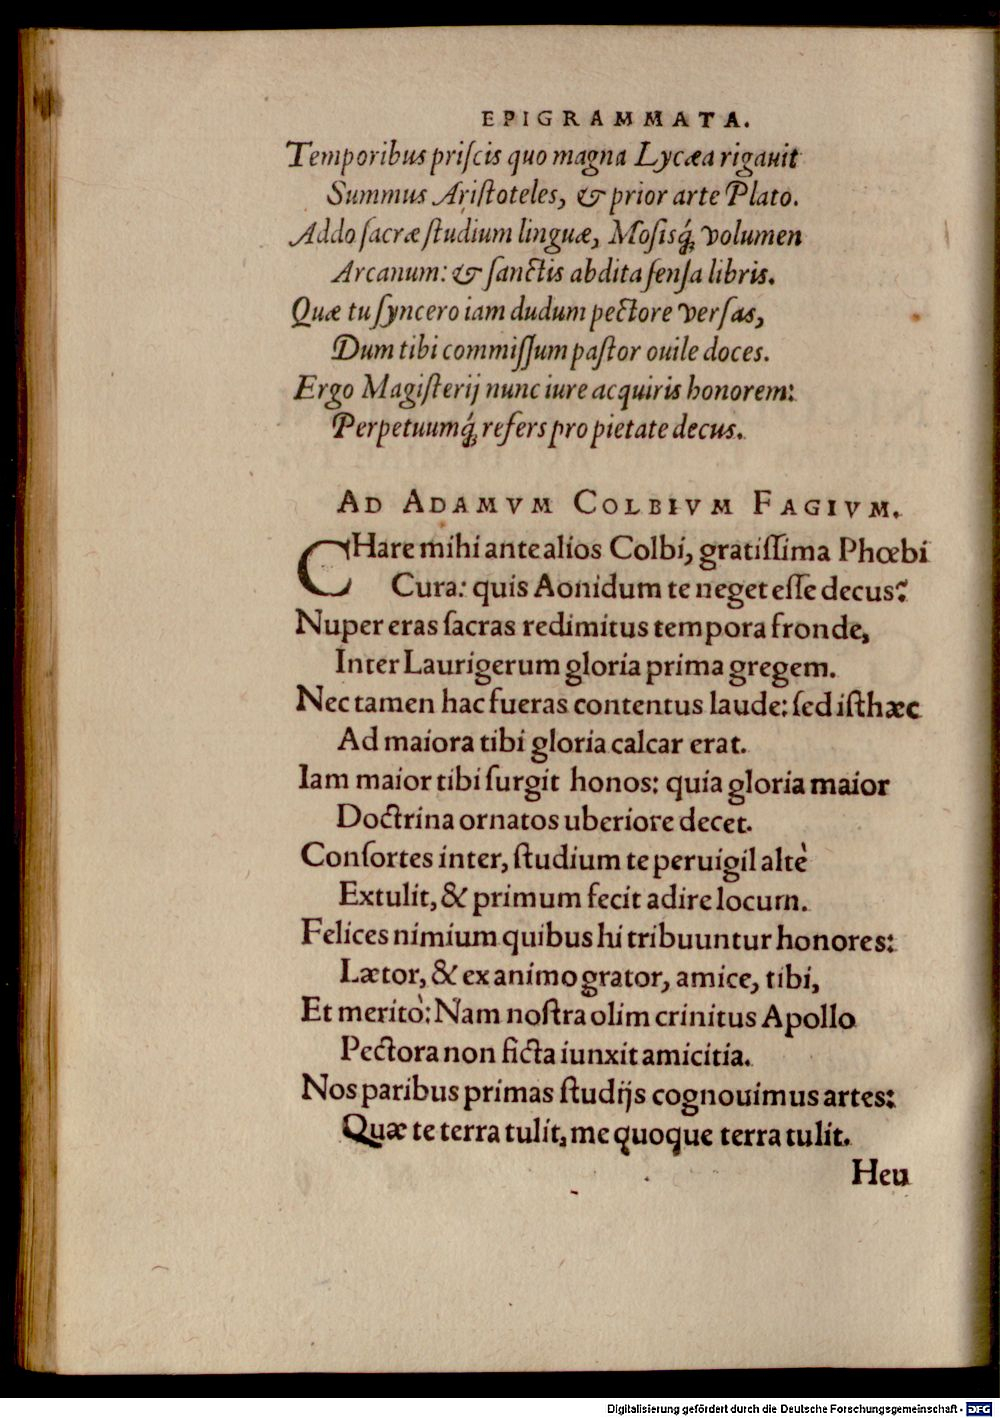 EPIGRAMMATA.
Temporibus priſcis quo magna Lycæa rigauit
Summus Ariſtoteles, & prior arte Plato.
Addo ſacræ ſtudium linguæ, Moſisq́; volumen
Arcanum: & ſanctis abdita ſenſa libris.
Quæ tu ſyncero iam dudum pectore verſas,
Dum tibi commiſſum paſtor ouile doces.
Ergo Magiſterij nunc iure acquiris honorem:
Perpetuumq́; refers pro pietate decus.
AD ADAMVM COLBIVM FAGIVM.
CHare mihi ante alios Colbi, gratiſſima Phœbi
Cura: quis Aonidum te neget eſſe decus?
Nuper eras ſacras redimitus tempora fronde,
Inter Laurigerum gloria prima gregem.
Nec tamen hac fueras contentus laude: ſed iſthæc
Ad maiora tibi gloria calcar erat.
Iam maior tibi ſurgit honos: quia gloria maior
Doctrina ornatos uberiore decet.
Conſortes inter, ſtudium te peruigil altè
Extulit, & primum fecit adire locum.
Felices nimium quibus hi tribuuntur honores:
Lætor, & ex animo grator, amice, tibi,
Et meritò: Nam noſtra olim crinitus Apollo
Pectora non ficta iunxit amicitia.
Nos paribus primas ſtudijs cognouimus artes:
Quæ te terra tulit, me quoque terra tulit.
Heu
Digitalisierung gefördert durch die Deutsche Forschungsgemeinschaft - DFG